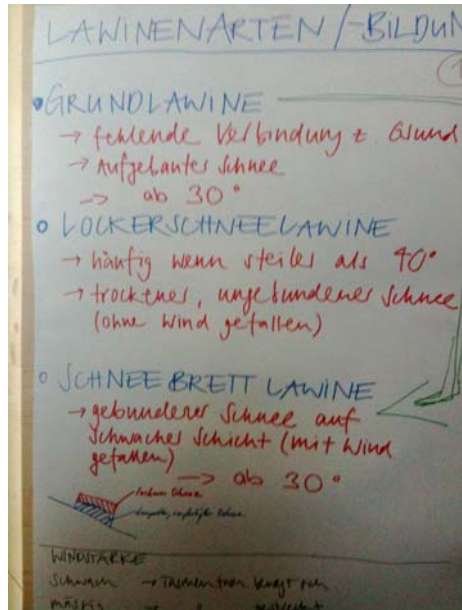 LAWINENARTEN /-BILDUN
1
• GRUNDLAWINE
→ fehlende Verbindung z. Grund
→ Aufgebauter Schnee
→ ab 30°
o LOCKERSCHNEELAWINE
→ häufig wenn steiler als 40°
→ trockener, ungebundener Schnee
(ohne Wind gefallen)
o SCHNEEBRETTLAWINE
→ gebundener Schnee auf
schwacher Schicht (mit Wind
gefallen)
→ ab 30°
Schnee
Schnee
WINDSTÄRKE
Schwach → bewegt
mässig →